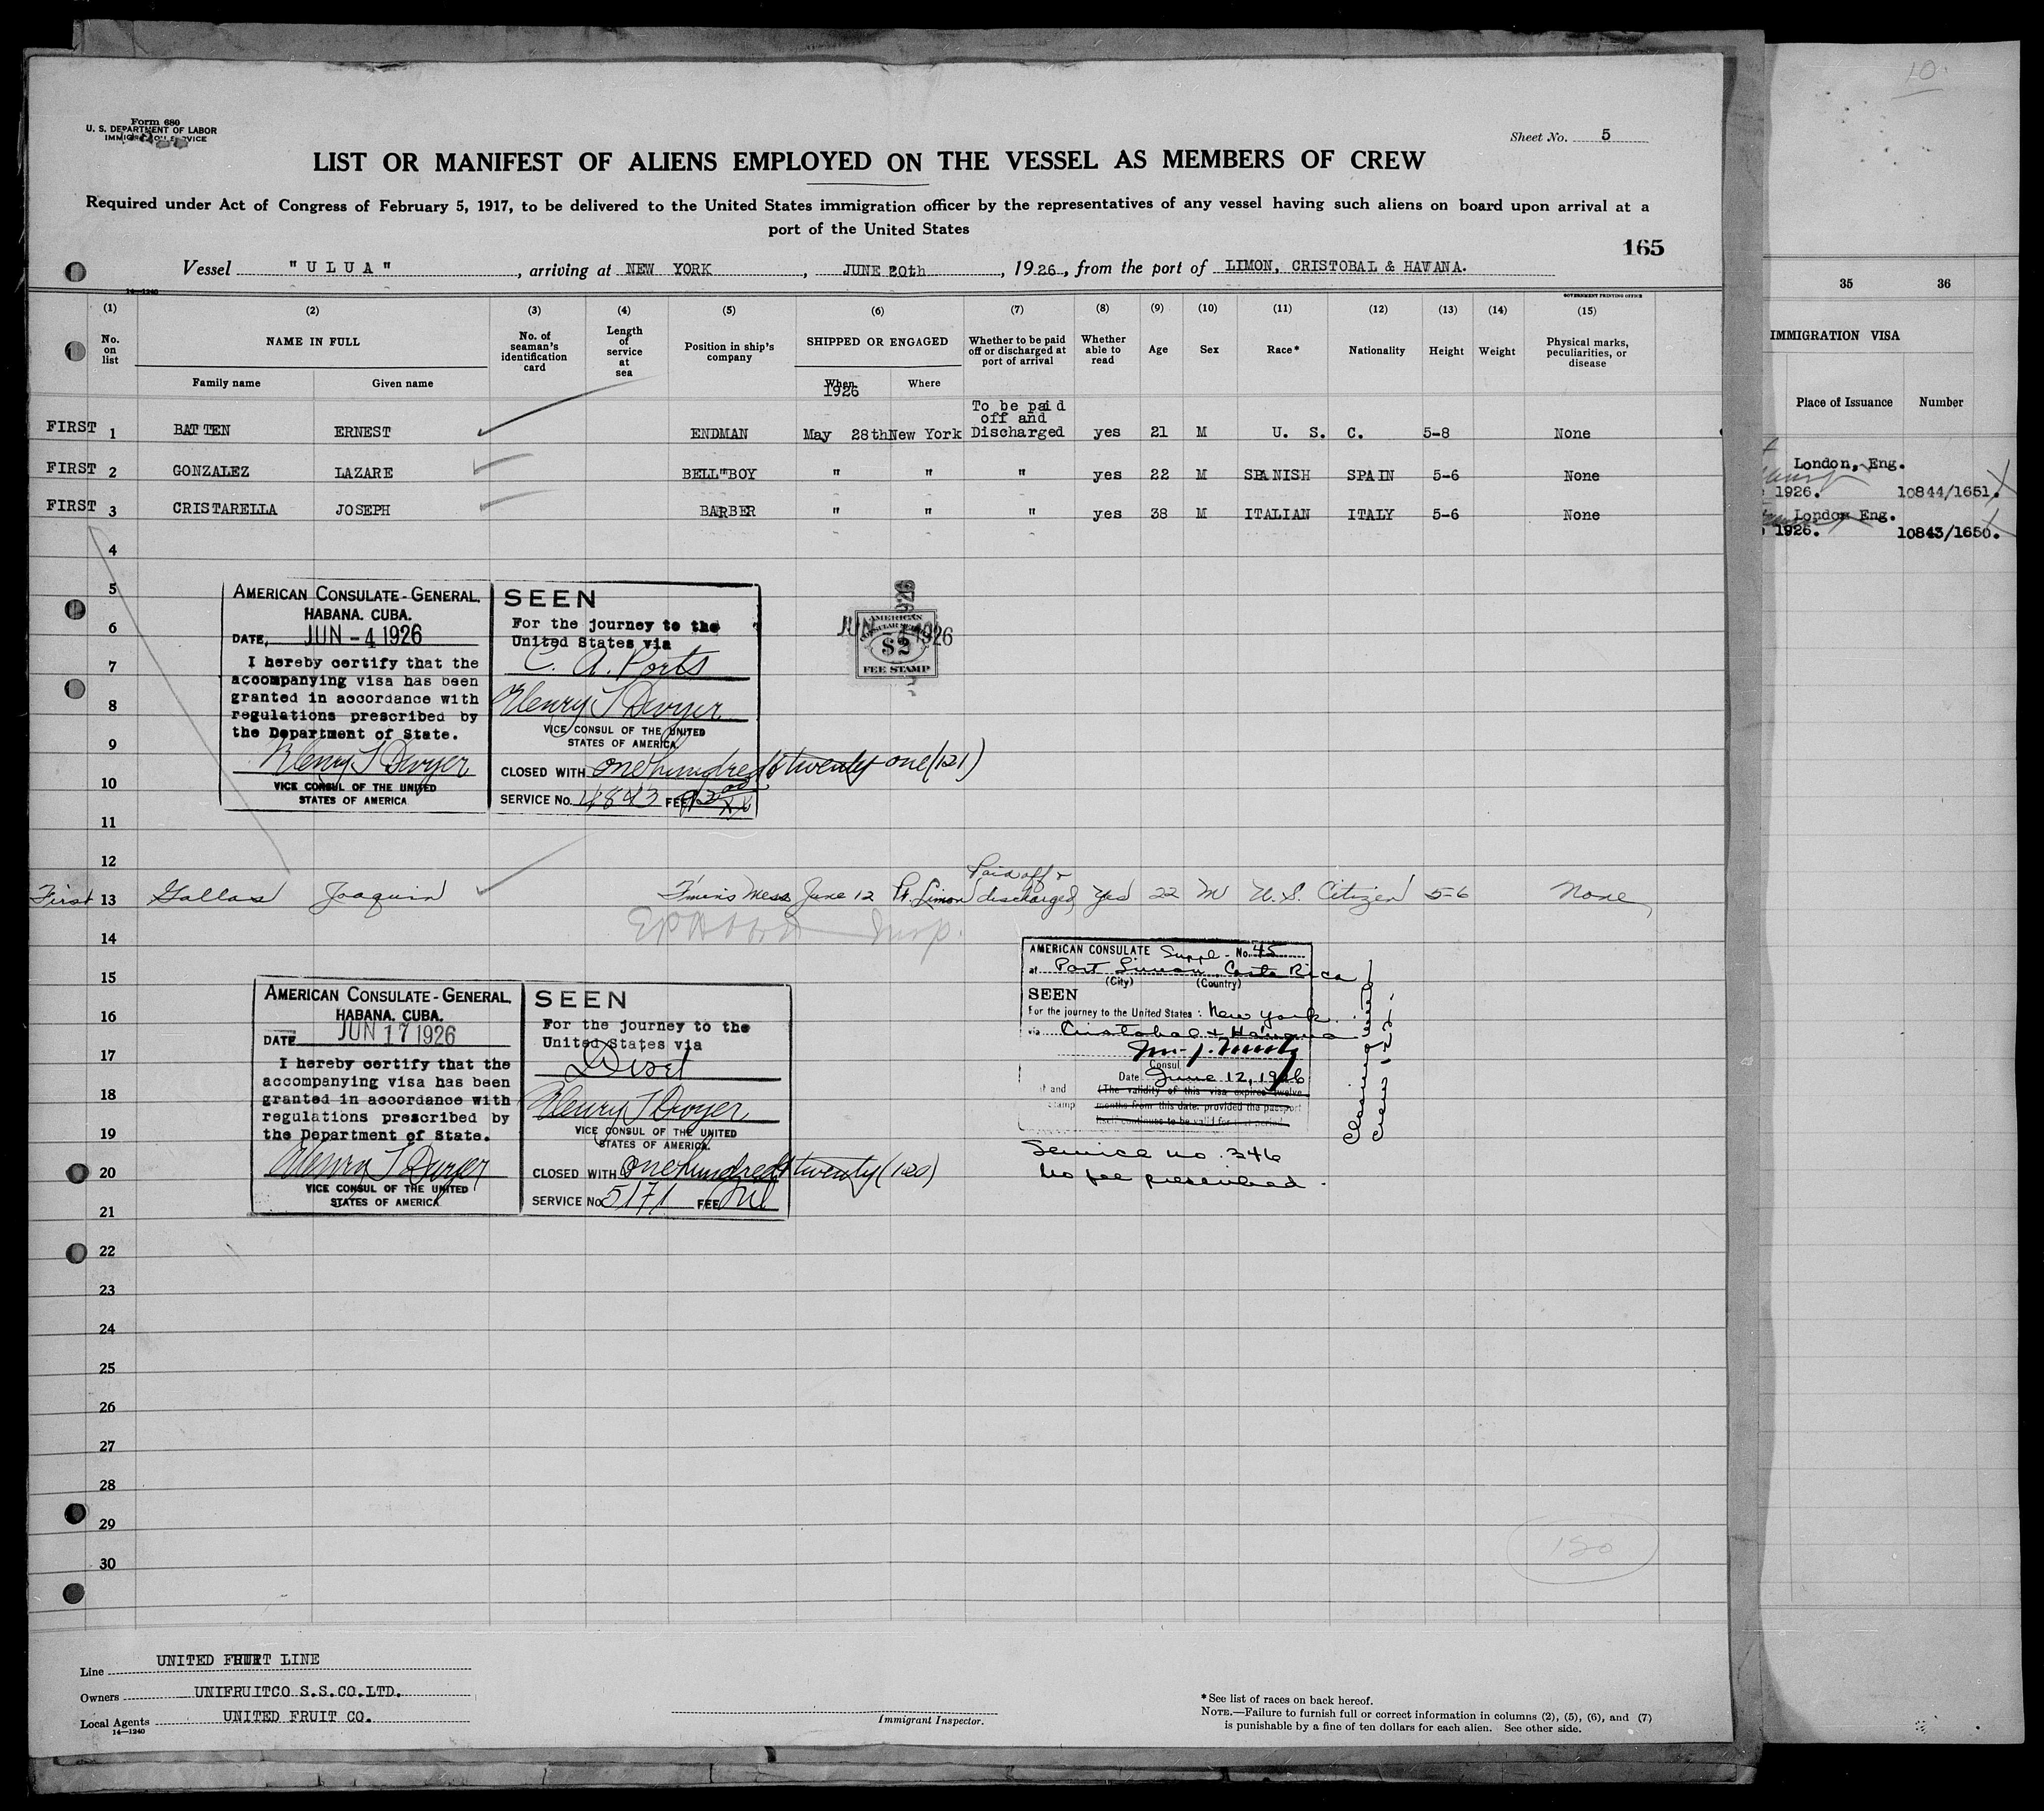 Form 680
U. S. DEPARTMENT OF LABOR
IMMIGRATION SERVICE
Sheet No. 5
LIST OR MANIFEST OF ALIENS EMPLOYED ON THE VESSEL AS MEMBERS OF CREW
Required under Act of Congress of February 5, 1917, to be delivered to the United States immigration officer by the representatives of any vessel having such aliens on board upon arrival at a
port of the United States
165
Vessel "ULUA", arriving at NEW YORK, JUNE 20th, 1926, from the port of LIMON, CRISTOBAL & HAVANA.
14—1240
GOVERNMENT PRINTING OFFICE
(1) (2) (3) (4) (5) (6) (7) (8) (9) (10) (11) (12) (13) (14) (15)
No. on list
NAME IN FULL
Family name Given name
No. of seaman's identification card
Length of service at sea
Position in ship's company
SHIPPED OR ENGAGED
When Where
1926
Whether to be paid off or discharged at port of arrival
Whether able to read
Age
Sex
Race*
Nationality
Height
Weight
Physical marks, peculiarities, or disease
To be paid
off and
FIRST 1 BATTEN ERNEST ENDMAN May 28th New York Discharged yes 21 M U. S. C. 5-8 None
FIRST 2 GONZALEZ LAZARE BELL"BOY " " " yes 22 M SPANISH SPAIN 5-6 None
FIRST 3 CRISTARELLA JOSEPH BARBER " " " yes 38 M ITALIAN ITALY 5-6 None
4
5
6
7
8
9
10
11
12
AMERICAN CONSULATE-GENERAL.
HABANA. CUBA.
DATE, JUN -4 1926
I hereby certify that the
accompanying visa has been
granted in accordance with
regulations prescribed by
the Department of State.
Henry T Dwyer
VICE CONSUL OF THE UNITED
STATES OF AMERICA
SEEN
For the journey to the
United States via
C. A. Ports
Henry T Dwyer
VICE CONSUL OF THE UNITED
STATES OF AMERICA
CLOSED WITH one hundred & twenty one (121)
SERVICE No. 4843 FEE
AMERICAN
$2
FEE STAMP
1926
Paid off &
First 13 Gallas Joaquin Mess June 12 Pt. Limon discharged Yes 22 M U.S. Citizen 5-6 None
14
15
16
17
18
19
20
21
Insp.
AMERICAN CONSULATE-GENERAL.
HABANA. CUBA.
DATE JUN 17 1926
I hereby certify that the
accompanying visa has been
granted in accordance with
regulations prescribed by
the Department of State.
Henry T Dwyer
VICE CONSUL OF THE UNITED
STATES OF AMERICA
SEEN
For the journey to the
United States via
Direct
Henry T Dwyer
VICE CONSUL OF THE UNITED
STATES OF AMERICA.
CLOSED WITH one hundred & twenty (120)
SERVICE No 5171 FEE Nil
AMERICAN CONSULATE Suppl. No. 45
at Port Limon, Costa Rica
(City) (Country)
SEEN
For the journey to the United States: New York
via Cristobal & Havana
Consul
Date June 12, 1926
(The validity of this visa expires twelve
months from this date, provided the passport
itself continues to be valid for that period.
Closing with
crew 122
Service no. 346
No fee prescribed.
22
23
24
25
26
27
28
29
30
120
Line UNITED FRUIT LINE
Owners UNIFRUITCO S.S.CO.LTD.
Local Agents UNITED FRUIT CO.
14—1240
Immigrant Inspector.
*See list of races on back hereof.
NOTE.—Failure to furnish full or correct information in columns (2), (5), (6), and (7)
is punishable by a fine of ten dollars for each alien. See other side.
10
35 36
IMMIGRATION VISA
Place of Issuance Number
London, Eng.
1926. 10844/1651.
London Eng.
1926. 10843/1650.